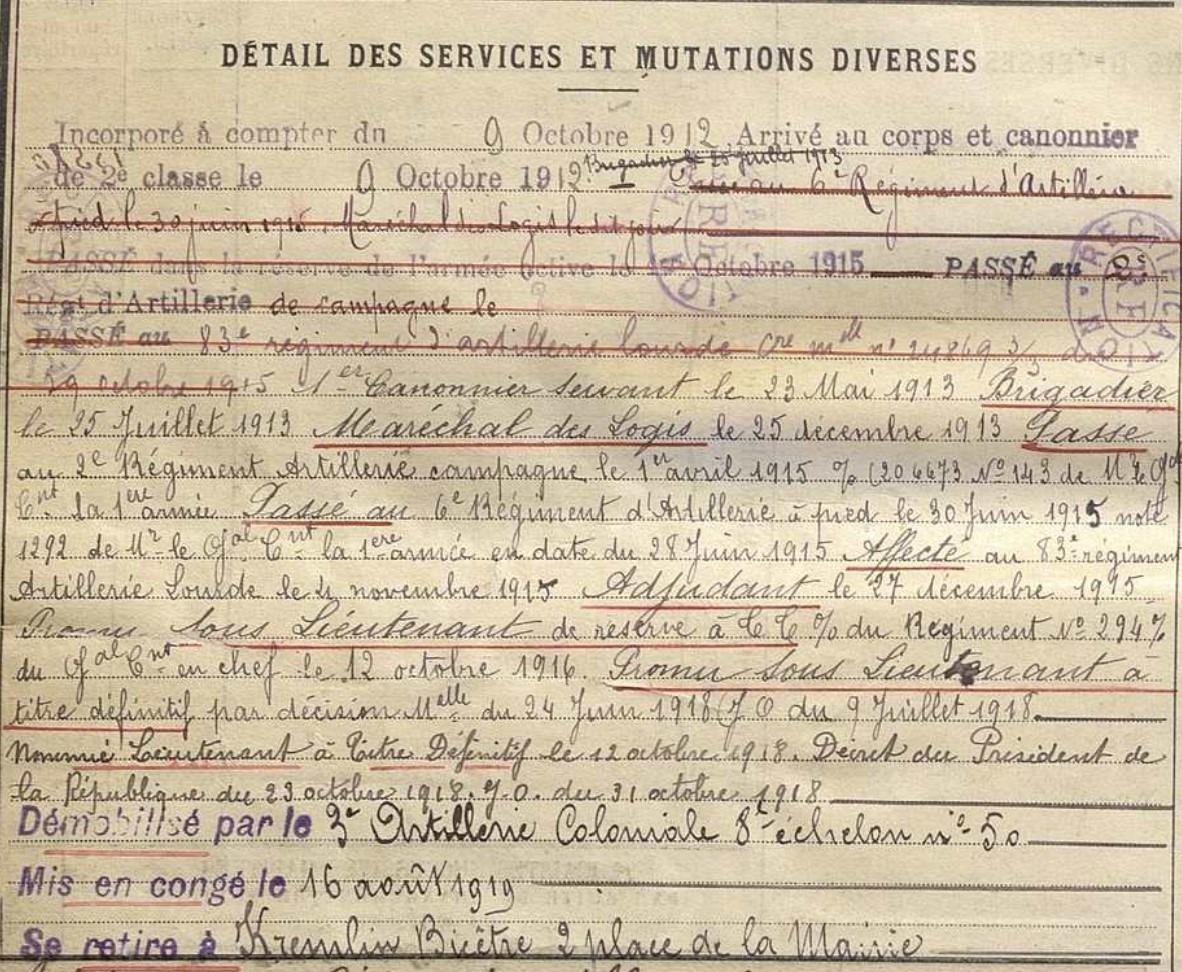 DÉTAIL DES SERVICES ET MUTATIONS DIVERSES
Incorporé à compter du 9 Octobre 1912 Arrivé au corps et canonnier
de 2e classe le 9 Octobre 1912 Brigadier le 25 juillet 1913 Passé au 6e Régiment d'Artillerie
à pied le 30 juin 1915. Maréchal des Logis le dit jour
PASSÉ dans la réserve de l'armée active le Octobre 1915 PASSÉ au 2e
Régt d'Artillerie de campagne le
PASSÉ au 83e régiment d'artillerie lourde Cre mlle n° 24869 3/3 du
19 octobre 1915 1er Canonnier servant le 23 Mai 1913 Brigadier
le 25 Juillet 1913 Maréchal des Logis le 25 décembre 1913 Passé
au 2e Régiment Artillerie campagne le 1er avril 1915 % (20 6673 No 143 de Mr le Gal
Cnt la 1ère armée Passé au 6e Régiment d'Artillerie à pied le 30 Juin 1915 note
1292 de Mr le Gal Cnt la 1ère armée en date du 28 Juin 1915 Affecté au 83e régiment
Artillerie Lourde le 4 novembre 1915 Adjudant le 27 décembre 1915
Promu Sous Lieutenant de réserve à CC % du Régiment No 294 %
du Gal Cnt en chef le 12 octobre 1916. Promu sous Lieutenant à
titre définitif par décision Melle du 24 Juin 1918 (J O du 9 Juillet 1918
Nommé Lieutenant à Titre Définitif le 12 octobre 1918. Décret du Président de
la République du 23 octobre 1918. J.O. du 31 octobre 1918
Démobilisé par le 3e Artillerie Coloniale 8e échelon no 50
Mis en congé le 16 août 1919
Se retire à Kremlin Bicêtre 2 place de la Mairie